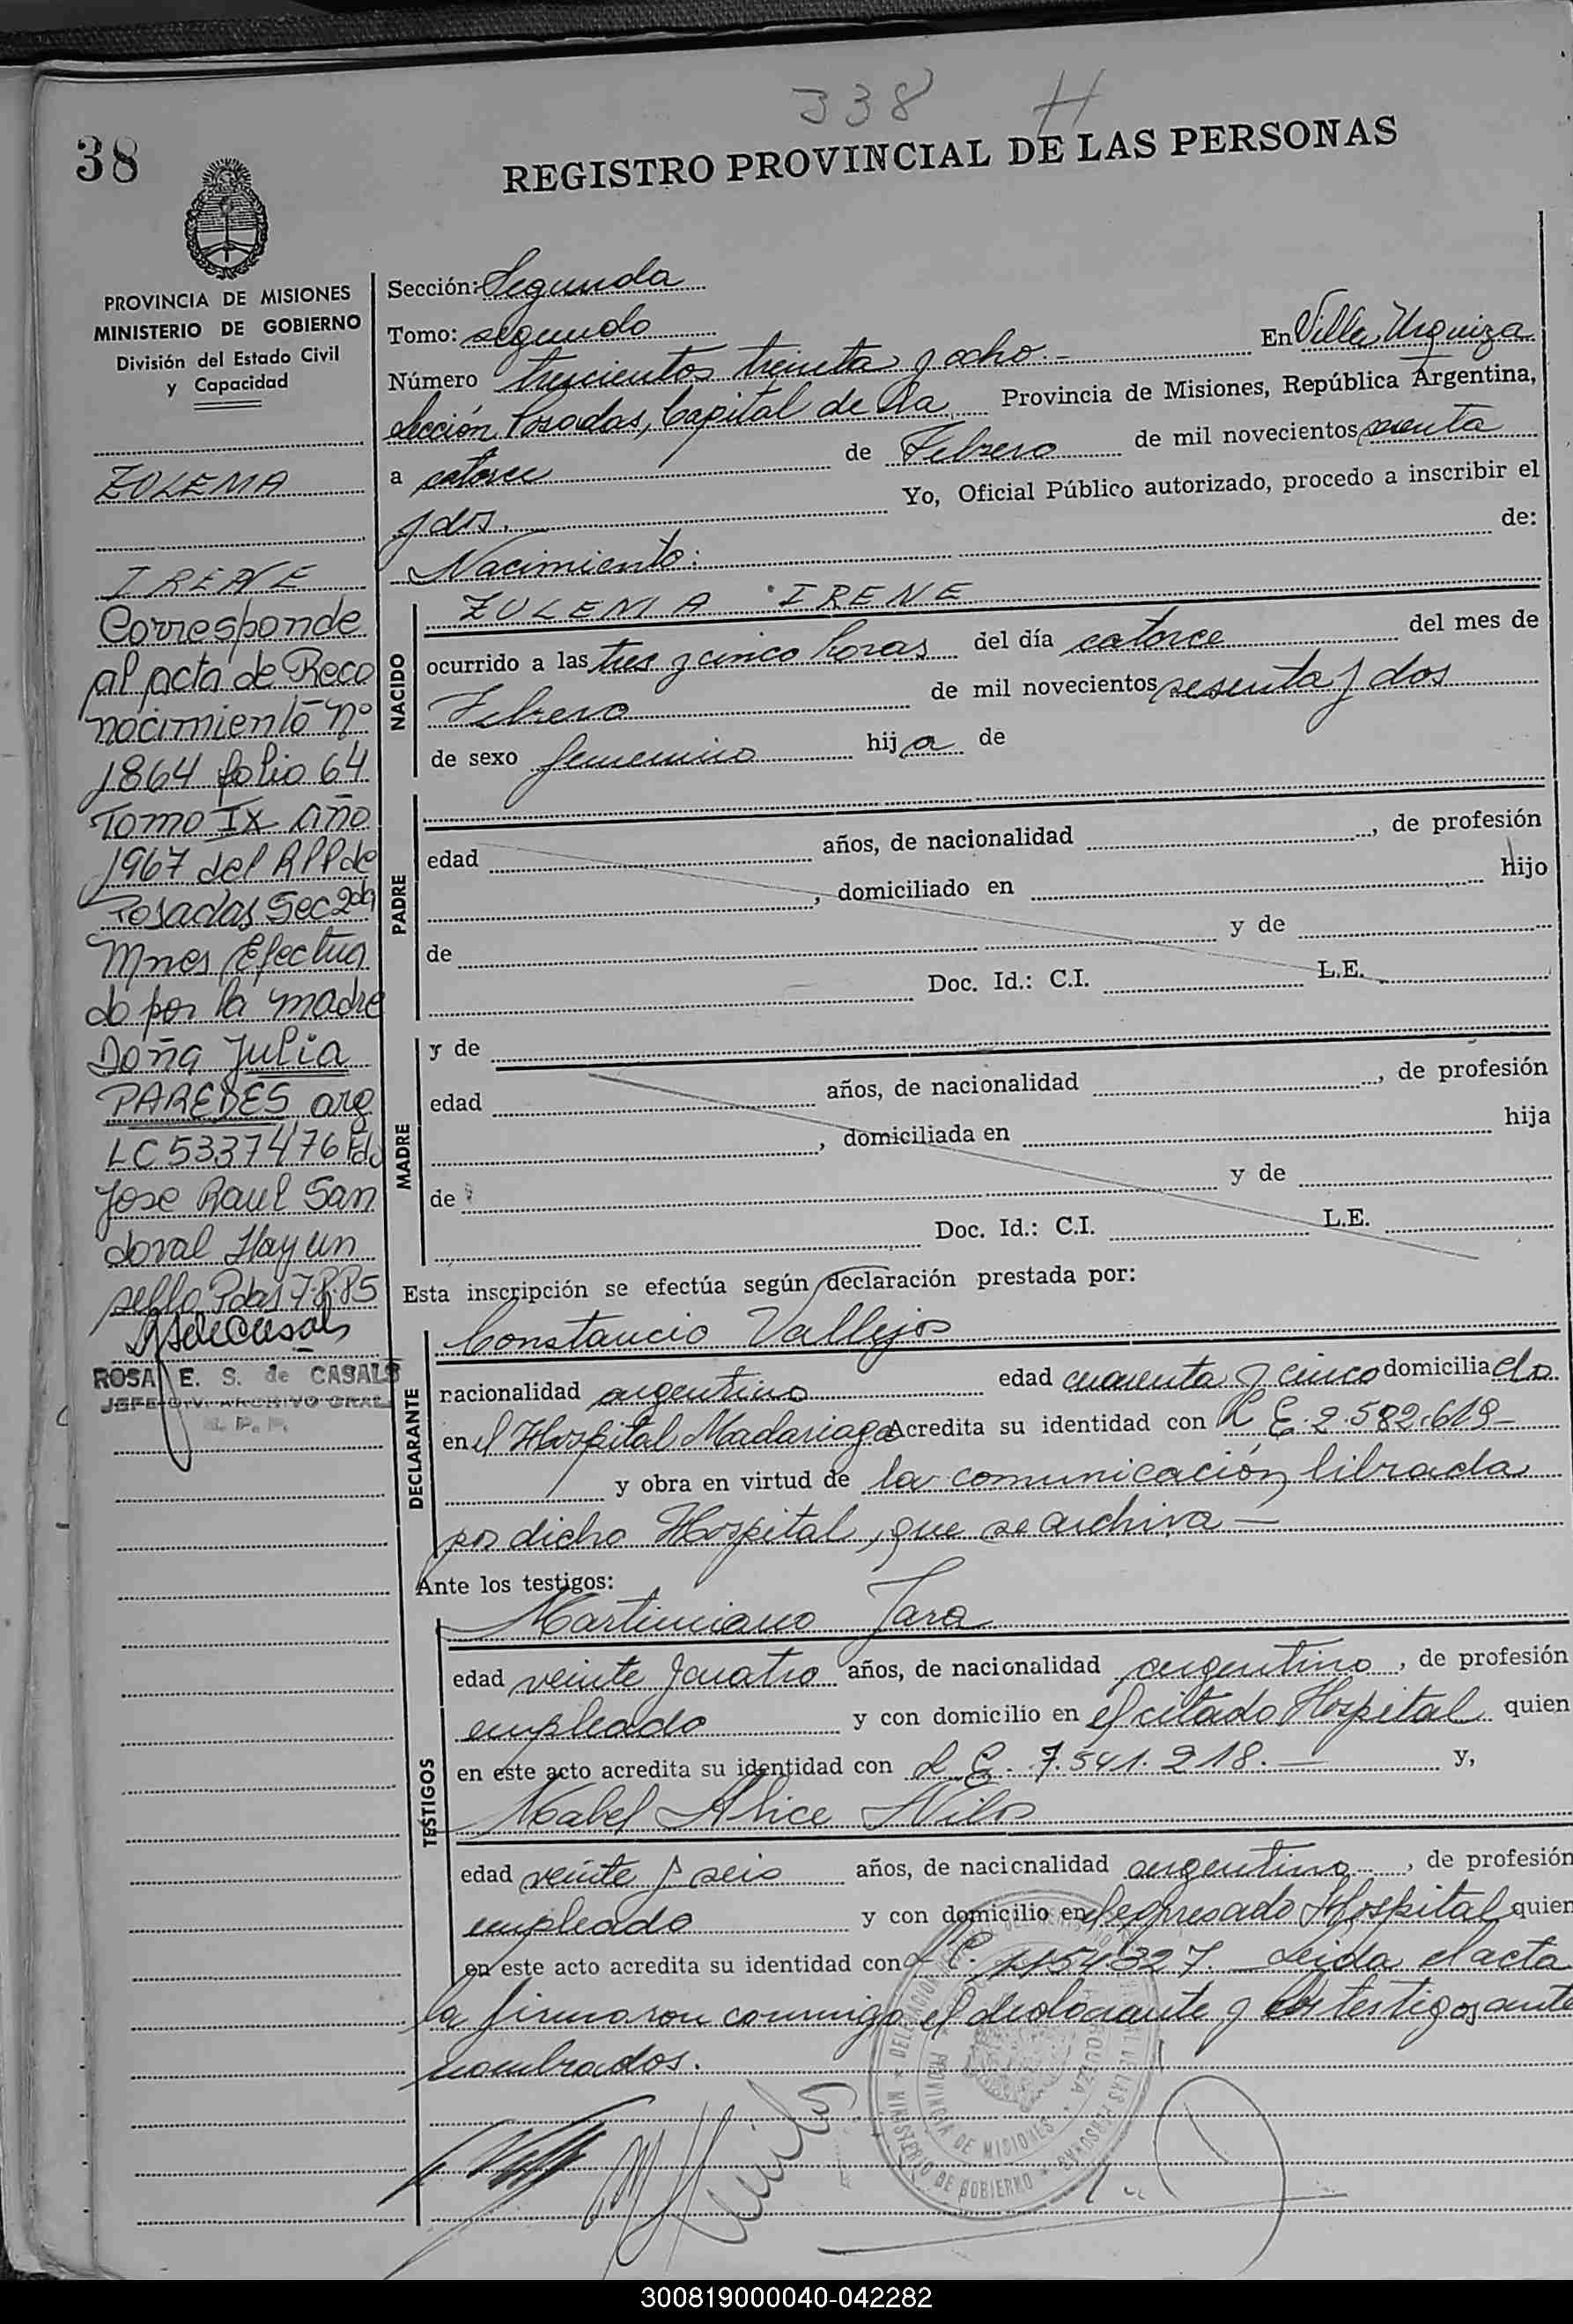 338 H
38
REGISTRO PROVINCIAL DE LAS PERSONAS
PROVINCIA DE MISIONES
MINISTERIO DE GOBIERNO
División del Estado Civil
y Capacidad
ZULEMA
IRENE
Corresponde
al acta de Reco
nocimiento nº
1864 folio 64
Tomo IX año
1967 del RPP de
Posadas Sec 2da
Mnes Efectua
do por la madre
Doña Julia
PAREDES arg
LC 5337476 Fdo
Jose Raul San
doval Hay un
sello Pdas 7.8.85
ROSA E. S. de CASALS
JEFE DIV. ARCHIVO GRAL.
R. P. P.
Sección: Segunda
Tomo: segundo
Número trescientos treinta y ocho.- En Villa Urquiza
sección Posadas, Capital de la Provincia de Misiones, República Argentina,
a catorce de Febrero de mil novecientos sesenta
y dos. Yo, Oficial Público autorizado, procedo a inscribir el
Nacimiento: de:
NACIDO
ZULEMA IRENE
ocurrido a las tres y cinco horas del día catorce del mes de
Febrero de mil novecientos sesenta y dos
de sexo femenino hija de
PADRE
edad años, de nacionalidad , de profesión
, domiciliado en hijo
de y de
Doc. Id.: C.I. L.E.
MADRE
y de
edad años, de nacionalidad , de profesión
, domiciliada en hija
de y de
Doc. Id.: C.I. L.E.
Esta inscripción se efectúa según declaración prestada por:
DECLARANTE
Constancio Vallejos
nacionalidad argentino edad cuarenta y cinco domiciliado
en el Hospital Madariaga Acredita su identidad con L E. 2.582.619-
y obra en virtud de la comunicación librada
por dicho Hospital, que se archiva-
Ante los testigos:
TESTIGOS
Martiniano Jara
edad veinte y cuatro años, de nacionalidad argentino, de profesión
empleado y con domicilio en el citado Hospital quien
en este acto acredita su identidad con L E. 7.541.218.- y,
Mabel Alice Nilos
edad veinte y seis años, de nacionalidad argentina, de profesión
empleado y con domicilio en el expresado Hospital quien
en este acto acredita su identidad con L C. 1154327. Leida el acta
la firmaron conmigo el declarante y los testigos ante
nombrados.
MINISTERIO DE GOBIERNO
PROVINCIA DE MISIONES
300819000040-042282